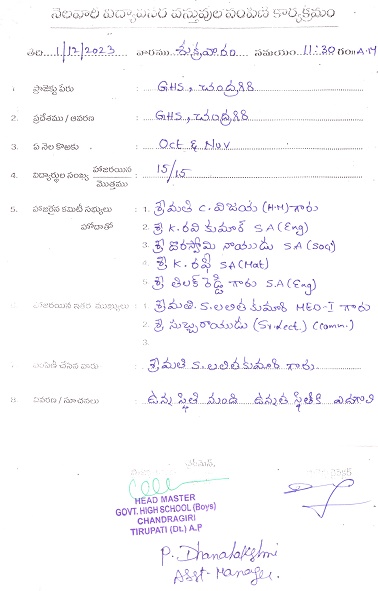 నెలవారీ విద్యావసర వస్తువుల పంపిణీ కార్యక్రమం
తేది 1/12/2023 వారము శుక్రవారం సమయం 11:30 గంటలు A.M
1. ప్రాజెక్టు పేరు : GHS, చంద్రగిరి
2. ప్రదేశము / ఆవరణ : GHS, చంద్రగిరి
3. ఏ నెల కొఱకు : Oct & Nov
4. విద్యార్థుల సంఖ్య హాజరయిన / మొత్తము : 15/15
5. హాజరైన కమిటీ సభ్యులు : 1. శ్రీమతి C. విజయ (H.M) గారు
హోదాతో 2. శ్రీ K. రవి కుమార్ S.A (Eng)
3. శ్రీ దొరస్వామి నాయుడు S.A (Soc)
4. శ్రీ K. రఫీ SA (Mat)
5. శ్రీ తిలక్ రెడ్డి గారు S.A (Eng)
హాజరయిన ఇతర ముఖ్యులు : 1. శ్రీమతి. S. లలిత కుమారి MEO-I గారు
2. శ్రీ సుబ్బరాయుడు (Sr. dect.) (Comm.)
3.
పంపిణీ చేసిన వారు : శ్రీమతి S. లలితకుమారి గారు
8. వివరణ / సూచనలు : ఉన్న స్థితి నుండి ఉన్నత స్థితికి ఎదగాలి
HEAD MASTER
GOVT. HIGH SCHOOL (Boys)
CHANDRAGIRI
TIRUPATI (Dt.) A.P
P. Dhanalakshmi
Asst- Manager.